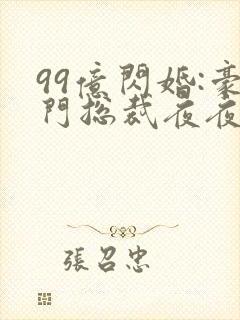 99億閃婚:豪
門總裁夜夜
張召忠